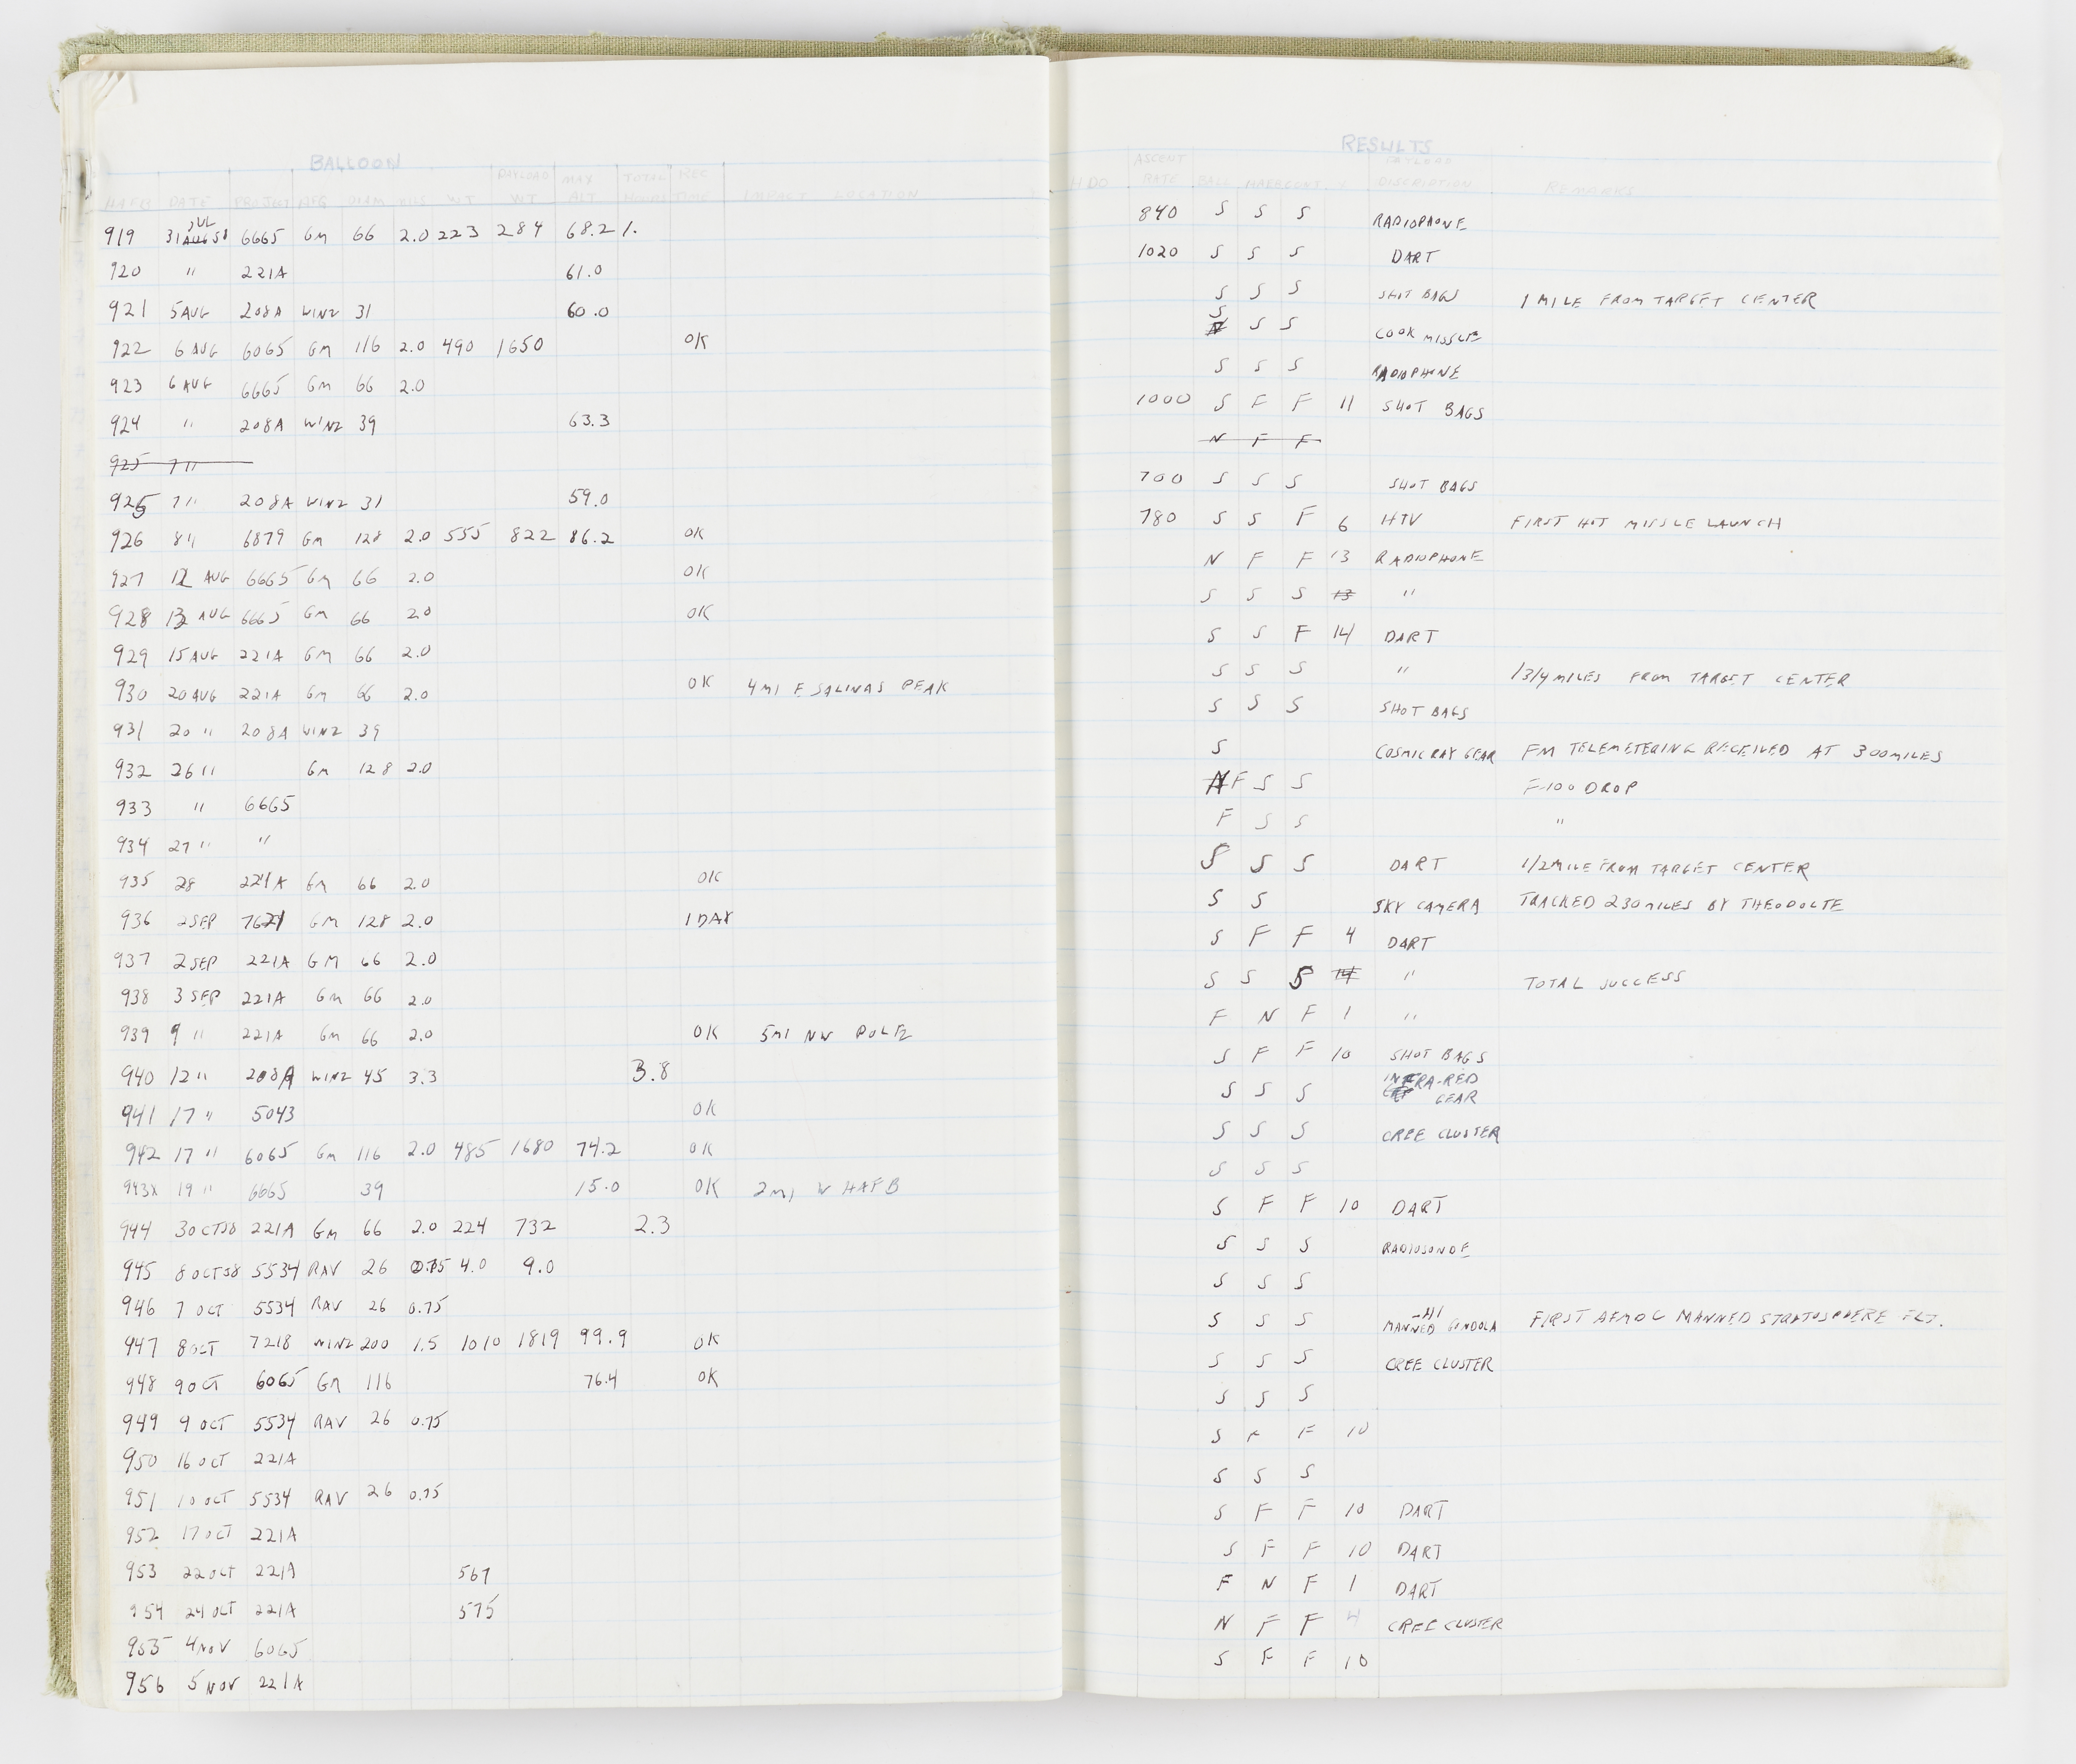 BALLOON
PAYLOAD MAX TOTAL REC
HAFB DATE PROJECT MFG DIAM MILS WT WT ALT HOURS TIME IMPACT LOCATION
JUL
919 31 AUG 58 6665 GM 66 2.0 223 284 68.2 1.
920 " 221A 61.0
921 5 AUG 208A WINZ 31 60.0
922 6 AUG 6065 GM 116 2.0 490 1650 OK
923 6 AUG 6665 GM 66 2.0
924 " 208A WINZ 39 63.3
925 7 "
925 7 " 208A WINZ 31 59.0
926 8 " 6879 GM 128 2.0 555 822 86.2 OK
927 12 AUG 6665 GM 66 2.0 OK
928 13 AUG 6665 GM 66 2.0 OK
929 15 AUG 221A GM 66 2.0
930 20 AUG 221A GM 66 2.0 OK 4 MI E SALINAS PEAK
931 20 " 208A WINZ 39
932 26 " GM 128 2.0
933 " 6665
934 27 " "
935 28 221A GM 66 2.0 OK
936 2 SEP 7621 GM 128 2.0 1 DAY
937 2 SEP 221A GM 66 2.0
938 3 SEP 221A GM 66 2.0
939 9 " 221A GM 66 2.0 OK 5 MI NW
940 12 " 208A WINZ 45 3.3 3.8
941 17 " 5043 OK
942 17 " 6065 GM 116 2.0 485 1680 74.2 OK
943X 19 " 6665 39 15.0 OK 2 MI W HAFB
944 3 OCT 58 221A GM 66 2.0 224 732 2.3
945 8 OCT 58 5534 RAV 26 0.75 4.0 9.0
946 7 OCT 5534 RAV 26 0.75
947 8 OCT 7218 WINZ 200 1.5 1010 1819 99.9 OK
948 9 OCT 6065 GM 116 76.4 OK
949 9 OCT 5534 RAV 26 0.75
950 16 OCT 221A
951 10 OCT 5534 RAV 26 0.75
952 17 OCT 221A
953 22 OCT 221A 567
954 24 OCT 221A 575
955 4 NOV 6065
956 5 NOV 221A
RESULTS
ASCENT PAYLOAD
RATE BALL CONT. DISCRIPTION REMARKS
840 S S S RADIOPHONE
1020 S S S DART
S S S SHOT BAGS 1 MILE FROM TARGET CENTER
S
N S S COOK MISSLE
S S S RADIOPHONE
1000 S F F 11 SHOT BAGS
N F F
700 S S S SHOT BAGS
780 S S F 6 HTV FIRST HOT MISSLE LAUNCH
N F F 13 RADIOPHONE
S S S 13 "
S S F 14 DART
S S S " 1 3/4 MILES FROM TARGET CENTER
S S S SHOT BAGS
S COSMIC RAY GEAR FM TELEMETERING RECEIVED AT 300 MILES
N F S S F-100 DROP
F S S "
S S S DART 1/2 MILE FROM TARGET CENTER
S S SKY CAMERA TRACKED 230 MILES BY THEODOLTE
S F F 4 DART
S S S 14 " TOTAL SUCCESS
F N F 1 "
S F F 10 SHOT BAGS
S S S INFRA-RED
GEAR
S S S CREE CLUSTER
S S S
S F F 10 DART
S S S RADIOSONDE
S S S
-HI
S S S MANNED GONDOLA FIRST AFMDC MANNED STRATOSPHERE FLT.
S S S CREE CLUSTER
S S S
S F F 10
S S S
S F F 10 DART
S F F 10 DART
F N F 1 DART
N F F 4 CREE CLUSTER
S F F 10